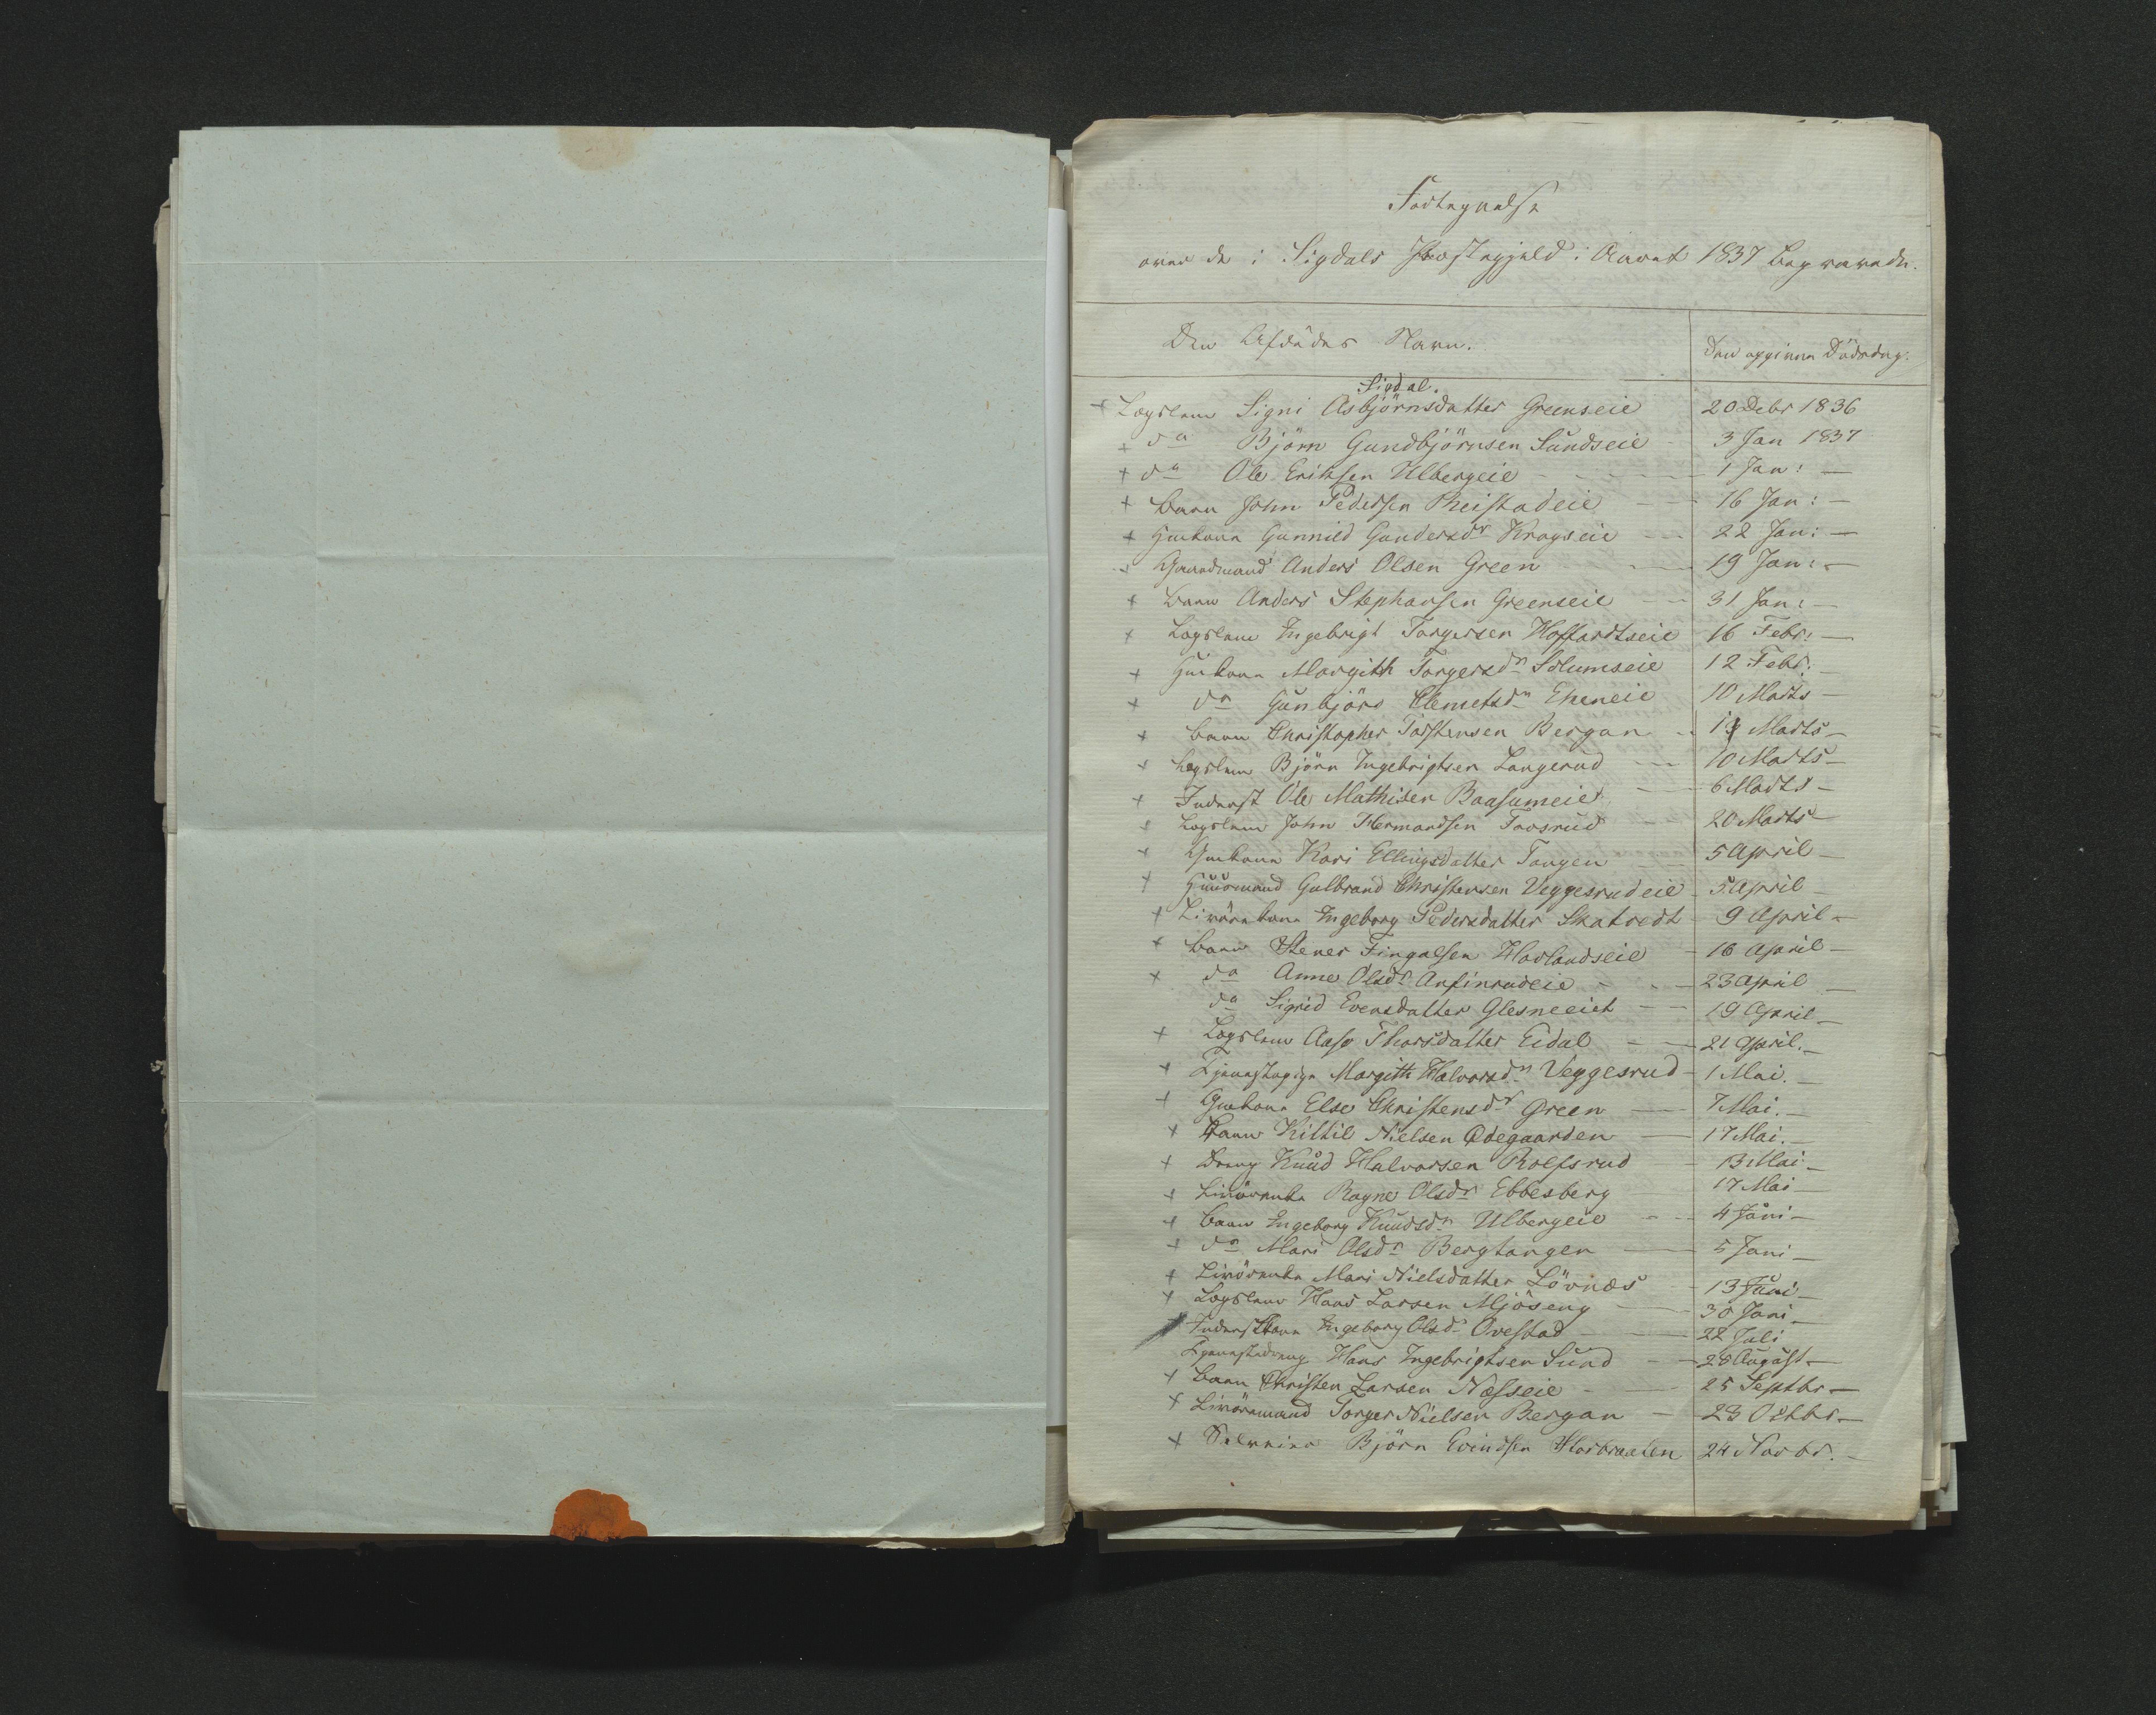 Fortegnelse
over de i Sigdals Præstegjeld i Aaret 1837 begravede.
Den Afdødes Navn. Den opgivne Dödsdag.
Sigdal.
+ Lægslem Signi Asbjörnsdatter Greenseie 20 Debr 1836
+ do Björn Gundbjörnsen Sundseie - 3 Jan 1837
+ do Ole Eriksen Ulbergeie - 1 Jan: -
+ Barn John Pedersen Reistadeie - 16 Jan: -
+ Huuskone Gunnild Gundersdr Kragseie - 22 Jan: -
+ Gaardmand Anders Olsen Green - 19 Jan: -
+ Barn Anders Stephansen Greenseie - 31 Jan: -
+ Lægslem Ingebrigt Torgersen Hoffartseie 16 Febr: -
+ Huuskone Margith Torgersdr Solumseie 12 Febr:
+ do Gunbjörd Clemetsdr Ekeneie 10 Marts -
+ Barn Christopher Torstensen Bergan - Marts -
+ Lægslem Björn Ingebrigtsen Langerud - 10 Marts -
+ Inderst Ole Mathisen Baasumeie - 6 Marts -
+ Lægslem John Hermandsen Frosrud - 20 Marts -
+ Huuskone Kari Ellingsdatter Tangen - 5 April -
+ Huusmand Gulbrand Christensen Veggesrudeie - 5 April -
+ Livörekone Ingeborg Pedersdatter Skatvedt - 9 April -
+ Barn Stener Fingalsen Hovlandseie - 16 April -
+ do Anne Olsdr Anfinrudeie - 23 April -
do Sigrid Evensdatter Glesneeiet - 19 April -
+ Lægslem Aase Thorsdatter Eidal - 21 April. -
+ Tjenestepige Margith Halvorsdr Veggesrud - 1 Mai. -
+ Huuskone Else Christensdr Green - 7 Mai. -
+ Barn Kittil Nielsen Ödegaarden - 17 Mai. -
+ Dreng Knud Halvorsen Rolfsrud - 13 Mai -
+ Livörenke Ragne Olsdr Ebbesberg 17 Mai -
+ Barn Ingeborg Knudsdr Ulbergeie - 4 Juni -
+ do Mari Olsdr Bergtangen - 5 Juni -
+ Livörenke Mari Nielsdatter Lövnæs - 13 Juni -
+ Lægslem Hans Larsen Mjöseng - 30 Juni -
Inderstkone Ingeborg Olsdr Ovestad - 22 Juli
Tjenestedreng Hans Ingebrigtsen Sund - 28 August -
+ Barn Christen Larsen Næsseie - 25 Septbr -
+ Livöremand Torger Nielsen Bergan - 23 Octbr. -
+ Björn Evindsen Horbraaten 24 Novbr. -